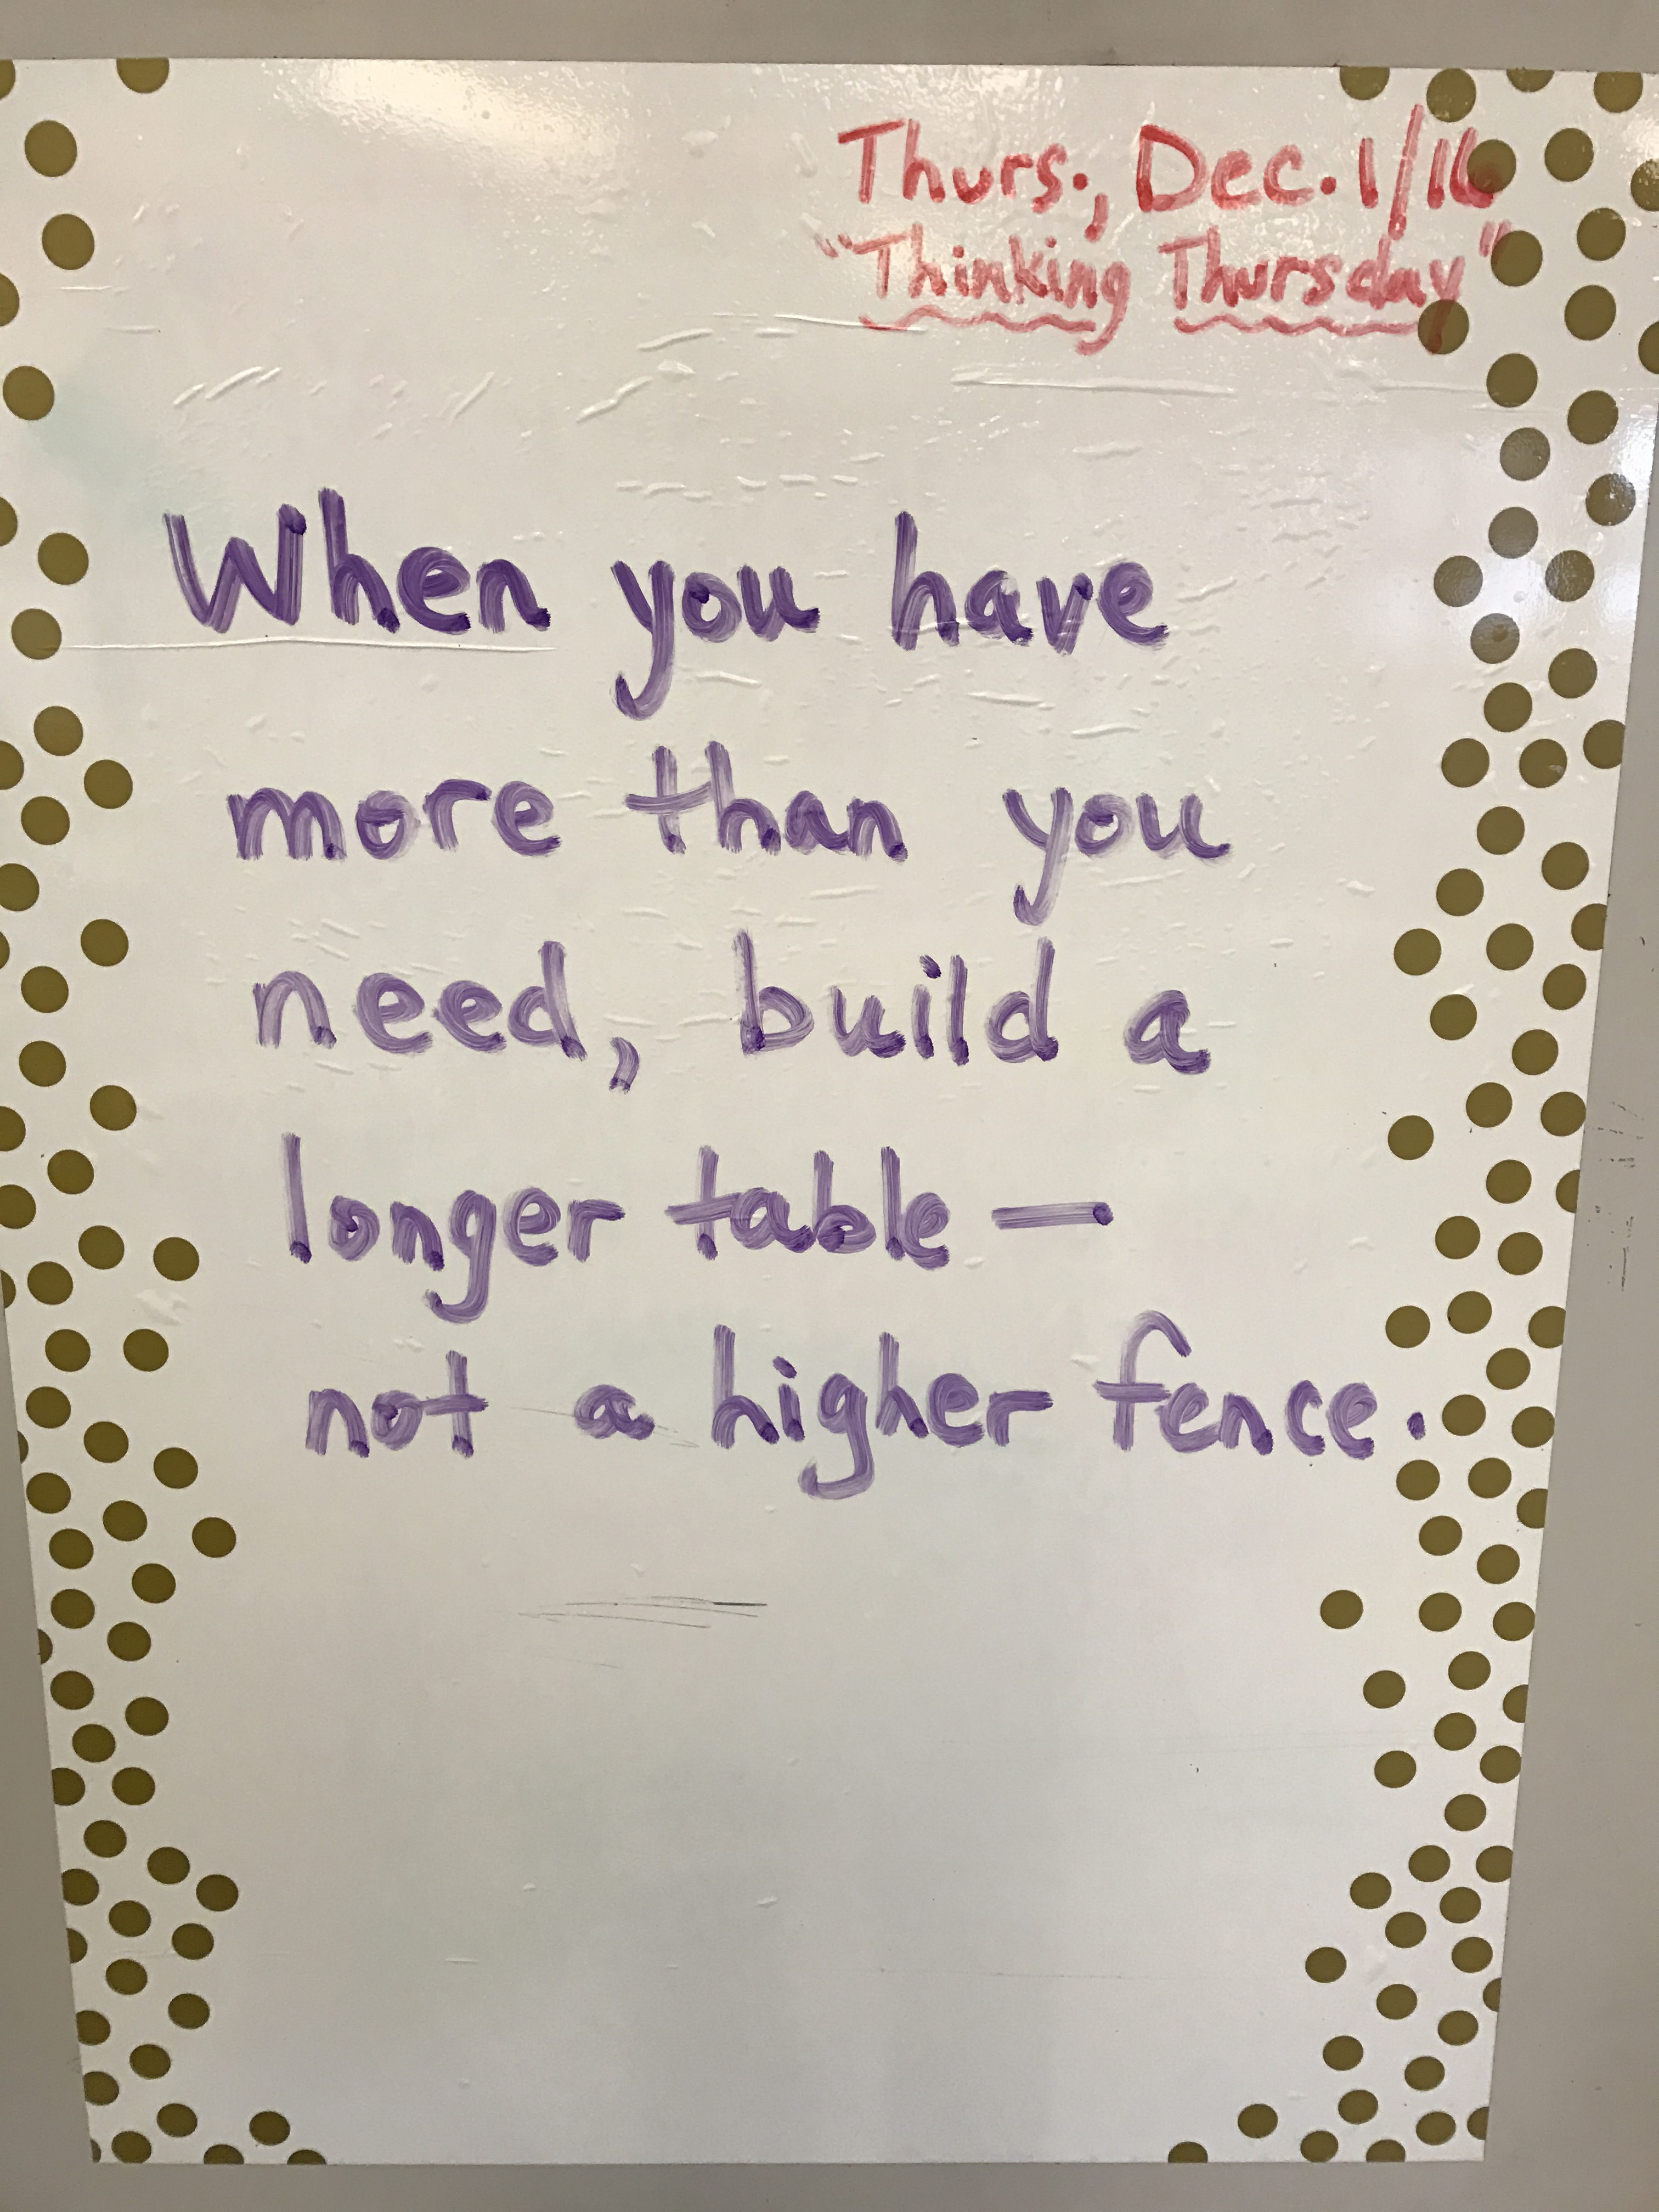 Thurs., Dec. 1/16
"Thinking Thursday"
When you have
more than you
need, build a
longer table —
not a higher fence.